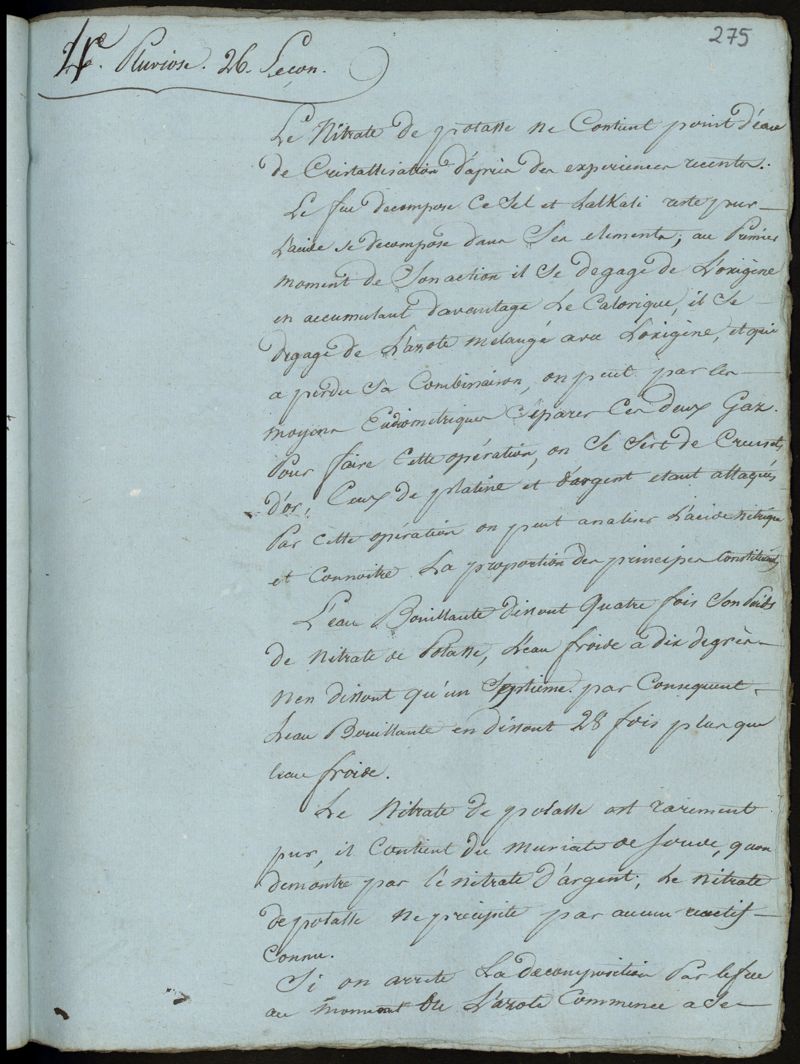 275
4e. Pluviose. 26. Leçon.
Le Nitrate de potasse ne Contient point d'eau
de Cristallisation d'après des experiences recentes.
Le feu decompose Ce Sel et Lalkali reste pur
L'acide se decompose dans Ses elements; au Premier
moment de Son action il Se degage de L'oxigène
en accumulant d'avantage Le Calorique, il Se
degage de L'azote melangé avec L'oxigène, et qui
a perdu Sa Combinaison, on peut par les
moyens Eudiometriques Separer Ces deux Gaz.
Pour faire Cette opération, on Se Sert de Creusets
d'or, Ceux de platine et d'argent etant attaqués
Par cette opération on peut analiser L'acide nitrique
et connoitre La proportion des principes Constituants
L'eau Bouillante dissout Quatre fois Son poids
de Nitrate de Potasse, L'eau froide à dix degrès
N'en dissout qu'un Septieme. par Consequent
L'eau Bouillante en dissout 28 fois plus que
leau froide.
Le Nitrate de potasse est rarement
pur, il Contient du muriate de soude, quon
demontre par le nitrate d'argent, Le nitrate
de potasse Ne precipite par aucun reactif
Connu.
Si on arrete La decomposition Par le feu
au moment Ou L'azote Commence a Se